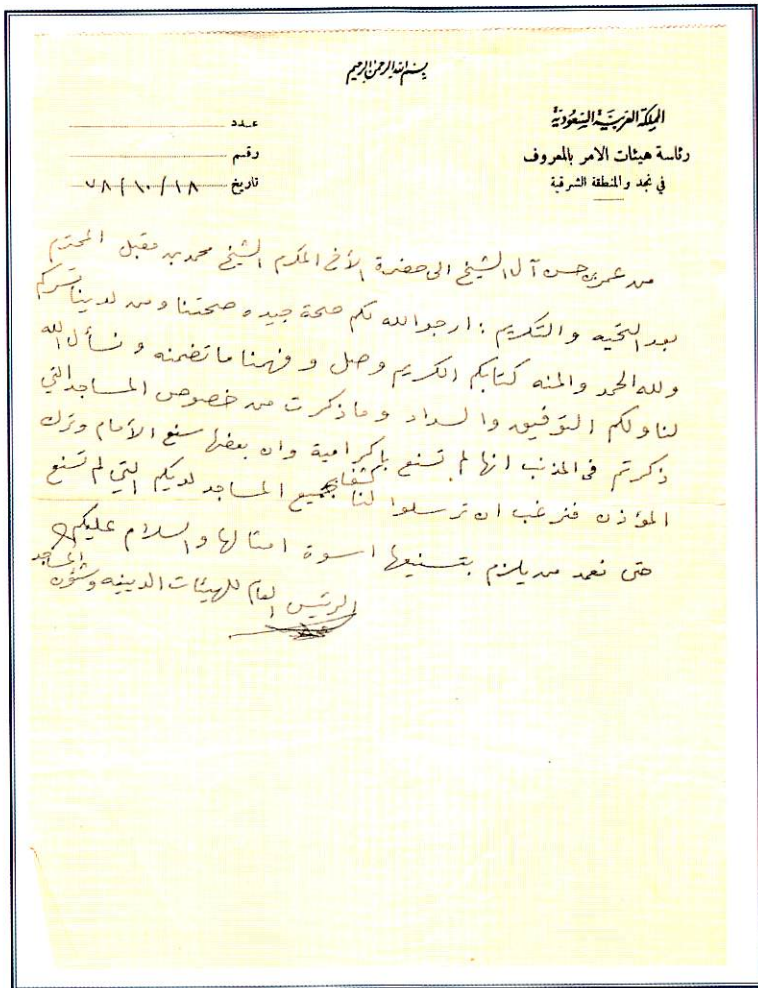 بسم الله الرحمن الرحيم
المملكة العربية السعودية
رئاسة هيئات الامر بالمعروف
في نجد والمنطقة الشرقية
عدد
رقم
تاريخ ١٨/١٠/٧٨
من عمر بن حسن آل الشيخ الى حضرة الأخ المكرم الشيخ محمد بن مقبل المحترم
بعد التحيه والتكريم : ارجو الله لكم صحة جيده صحتنا ومن لدينا تسركم
ولله الحمد والمنه كتابكم الكريم وصل وفهمنا ما تضمنه ونسأل الله
لنا ولكم التوفيق والسداد وما ذكرت من خصوص المساجد التي
ذكرتم في المذنب انها لم تسنع باكرامية وان بعضها سنع الأمام وترك
المؤذن فنرغب ان ترسلوا لنا جميع المساجد لديكم التي لم تسنع
حتى نعمد من يلزم بتسنيعها اسوة امثالها والسلام عليكم
الرئيس العام للهيئات الدينيه وشؤن المساجد